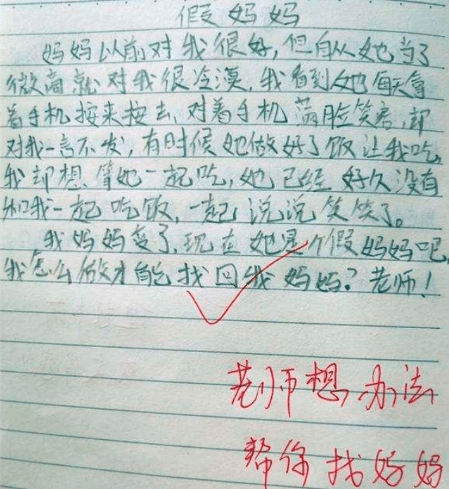 假妈妈
妈妈以前对我很好,但自从她当了
微商就对我很冷漠,我看到她每天拿
着手机按来按去,对着手机满脸笑容,却
对我一言不发,有时候她做好了饭让我吃,
我却想等她一起吃,她已经好久没有
和我一起吃饭,一起说说笑笑了。
我妈妈变了,现在她是个假妈妈吧,
我怎么做才能找回我妈妈?老师!
老师想办法
帮你找好妈